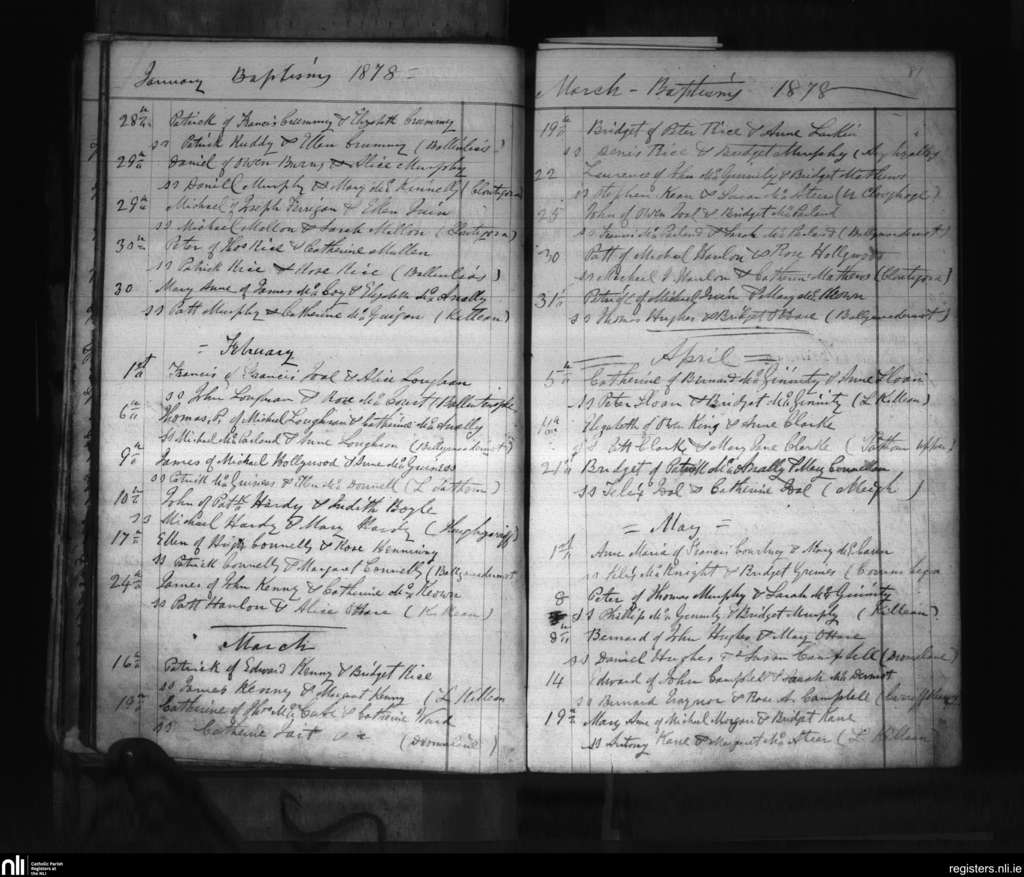 January Baptisms 1878
28th Patrick of Francis Crummy & Elizabeth Crummy
ss Patrick Ruddy & Ellen Crummy (Ballinliss)
29th Daniel of Owen Burns & Alice Murphy
ss Daniel Murphy & Mary Mc Kennelly (Cloutigora)
29th Michael of Joseph Ferrigan & Ellen Quin
ss Michael Mallon & Sarah Mallon (Cloutigora)
30th Peter of Thos Rice & Catherine Mullen
ss Patrick Rice & Rose Rice (Ballinliss)
30 Mary Anne of James McCoy & Elizabeth McAnally
ss Patt Murphy & Catherine McGuigan (Killean)
February
1st Francis of Francis Toal & Alice Loughran
ss John Loughran & Rose McCourt
6th Thomas P. of Michel Loughran & Catherine McAnally
ss Michel & Anne Loughran (Ballymacdermott)
9th James of Michael Hollywood & Anne McGuiness
ss Patrick McGuiness & Ellen McDonnell (L Fathom)
10th John of Patk Hardy & Judith Boyle
ss Michael Hardy & Mary Hardy
17th Ellen of Hugh Connelly & Rose
ss Patrick Connelly & Margaret Connelly (Ballymacdermot
24th James of John Kenny & Catherine McKeown
ss Patt Hanlon & Alice OHare (Killean)
March
16th Patrick of Edward Kenny & Bridget Rice
ss James Kenny & Margaret Kenny (L Killean
19th Catherine of Thos McCabe & Catherine Ward
ss Catherine (Dromilane)
81
March - Baptisms 1878
19th Bridget of Peter Rice & Anne Larkin
ss Denis Rice & Bridget Murphy
22 Laurence of John McGennity & Bridget Mathews
ss Stephen Kean & Susan McAteer (U Cloghoge)
25 John of Owen Toal & Bridget McParland
ss Francis McParland & Sarah McParland (Ballymacdermot)
30 Patt of Michael Hanlon & Rose Hollywood
ss Michael O Hanlon & Catherine Mathews (Cloutigora)
31st Patrick of Michael Quin & Mary McKeown
ss Thomas Hughes & Bridget OHare (Ballymacdermot)
April
5th Catherine of Bernard McGinnity & Anne Sloan
ss Peter Sloan & Bridget McGinnity (L Killean)
Elizabeth of Owen King & Anne Clarke
ss Patt Clarke & Mary Jane Clarke (Fathom Upper)
21st Bridget of Patrick McAnally & Mary Connellan
ss Felix Toal & Catherine Toal (Meigh)
May
1st Anne Maria of Francis Courtney & Mary
ss Felix McKnight & Bridget Grimes
8 Peter of Thomas Murphy & Sarah McGinnity
ss Phillip McGennity & Bridget Murphy (Killean)
8th Bernard of John Hughes & Mary OHare
ss Daniel Hughes & Susan Campbell (Dromilane)
14 Edward of John Campbell & Sarah McDermot
ss Bernard Traynor & Rose A. Campbell
19th Mary Anne of Michael Morgan & Bridget Kane
ss Antony Kane & Margaret McAteer (L Killean)
nli Catholic Parish Registers at the NLI
registers.nli.ie